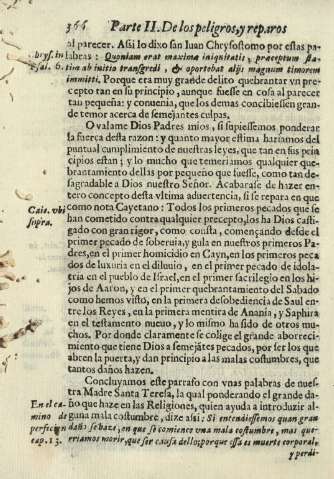 366 Parte II. De los peligros, y reparos
al parecer. Assi lo dixo san Iuan Chrysostomo por estas pa
brys. in labras: Quoniam erat maxima iniquitatis, praeceptum sta-
Psal. 6. tim ab initio transgredi, & oportebat alijs magnum timorem
immitti. Porque era muy grande delito quebrantar vn pre
cepto tan en su principio, aunque fuesse en cosa al parecer
tan pequeña: y conuenia, que los demas concibiessen gran-
de temor acerca de semejantes culpas.
O valame Dios Padres mios, si supiessemos ponderar
la fuerça desta razon: y quanto mayor estima hariamos del
puntual cumplimiento de nuestras leyes, que tan en sus prin
cipios estan; y lo mucho que temeriamos qualquier que-
brantamiento dellas por pequeño que fuesse, como tan de-
sagradable a Dios nuestro Señor. Acabarase de hazer en-
tero concepto desta vltima aduertencia, si se repara en que
Caie. vbi como nota Cayetano: Todos los primeros pecados que se
supra. han cometido contra qualquier precepto, los ha Dios casti-
gado con gran rigor, como consta, començando desde el
primer pecado de soberuia, y gula en nuestros primeros Pa
dres, en el primer homicidio en Cayn, en los primeros peca
dos de luxuria en el diluuio, en el primer pecado de idola-
tria en el pueblo de Israel, en el primer sacrilegio en los hi-
jos de Aaron, y en el primer quebrantamiento del Sabado
como hemos visto, en la primera desobediencia de Saul en-
tre los Reyes, en la primera mentira de Anania, y Saphira
en el testamento nueuo, y lo mismo ha sido de otros mu-
chos. Por donde claramente se colige el grande aborreci-
miento que tiene Dios a semejātes pecados, por ser los que
abren la puerta, y dan principio a las malas costumbres, que
tantos daños hazen.
Concluyamos este parrafo con vnas palabras de nues-
tra Madre Santa Teresa, la qual ponderando el grande da-
En el ca- ño que haze en las Religiones, quien ayuda a introduzir al-
mino de guna mala costumbre, dize assi: Si entendiessemos quan gran
perficion daño se haze, en que se comience vna mala costumbre, mas que-
cap. 13. rriamos morir, que ser causa dello; porque essa es muerte corporal,
y perdi-